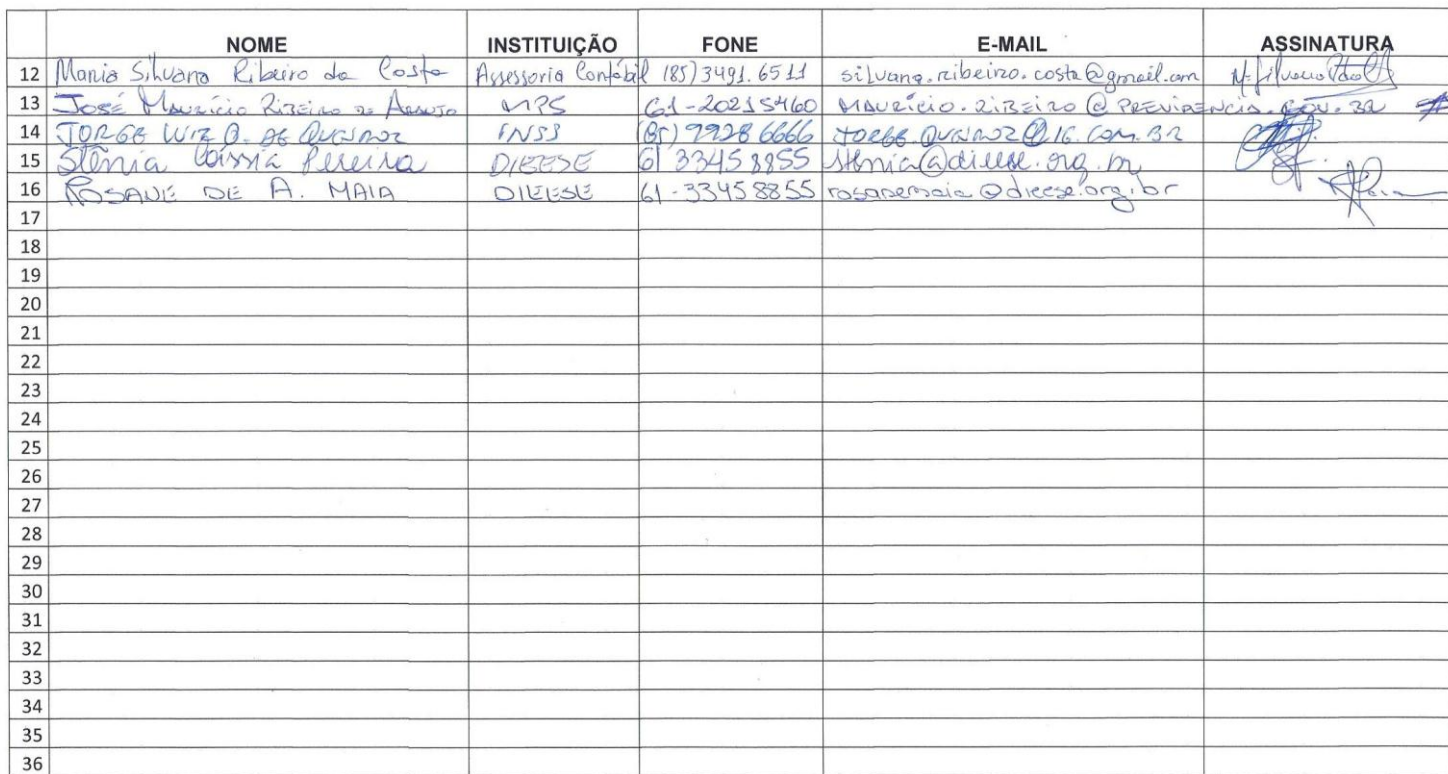 NOME INSTITUIÇÃO FONE E-MAIL ASSINATURA
12 Maria Silvana Ribeiro da Costa Assessoria Contábil (85)3491.6511 silvana.ribeiro.costa@gmail.com
13 José Maurício Ribeiro de Araujo MPS 61-20215460 MAURÍCIO.RIBEIRO@PREVIDENCIA.GOV.BR
14 JORGE LUIZ Q. DE QUEIROZ INSS (85) 9928 6666 JORGE.QUEIROZ@IG.COM.BR
15 Stênia Cássia Pereira DIEESE 61 33458855 stenia@dieese.org.br
16 ROSANE DE A. MAIA DIEESE 61-33458855 rosanemaia@dieese.org.br
17
18
19
20
21
22
23
24
25
26
27
28
29
30
31
32
33
34
35
36